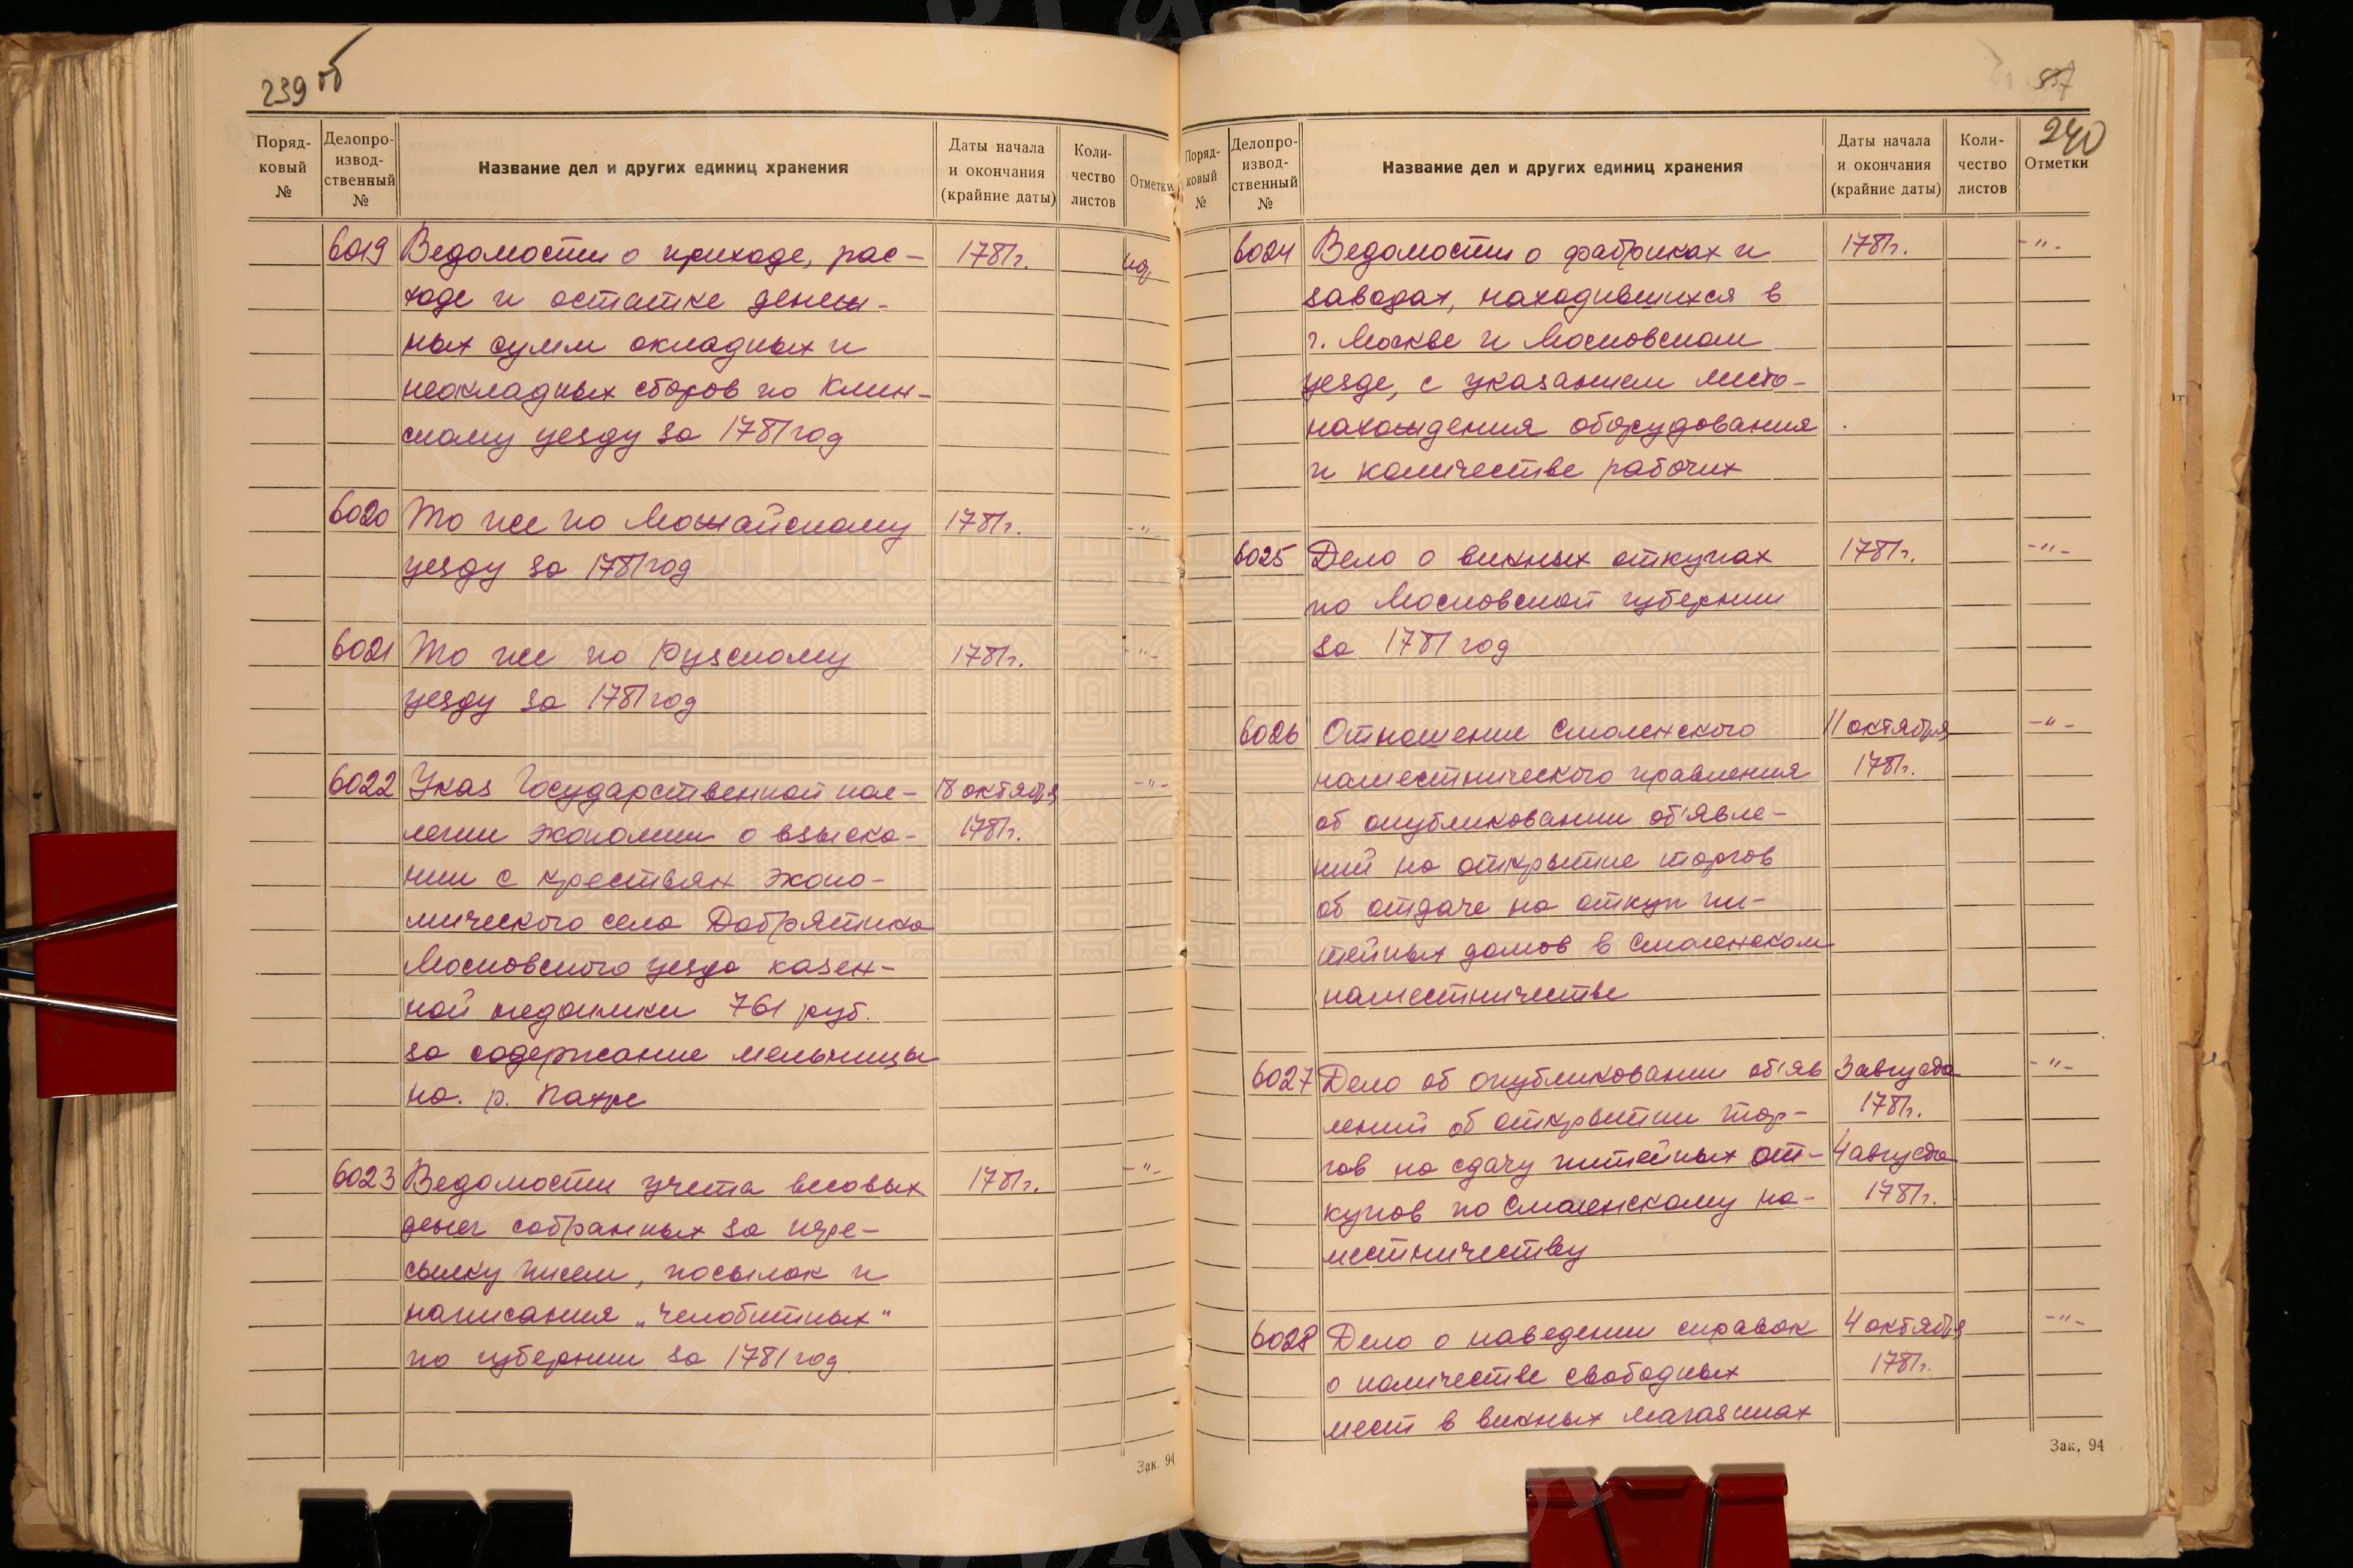 239 об
Поряд-
ковый
№
Делопро-
извод-
ственный
№
Название дел и других единиц хранения
Даты начала
и окончания
(крайние даты)
Коли-
чество
листов
Отметки
6019 Ведомости о приходе, рас- 1781г.
ходе и остатке денеж-
ных сумм окладных и
неокладных сборов по Клин-
скому уезду за 1781 год
6020 То же по Можайскому 1781г. -"-
уезду за 1781 год
6021 То же по Рузскому 1781г. -"-
уезду за 1781 год
6022 Указ Государственной кол- 18 октября -"-
легии экономии о взыска- 1781г.
нии с крестьян эконо-
мического села Добрятина
Московского уезда казен-
ной недоимки 761 руб.
за содержание мельницы
на. р. Пахре
6023 Ведомости учета весовых 1781г. -"-
денег собранных за пере-
сылку писем, посылок и
написания „челобитных"
по губернии за 1781 год
Зак. 94
537
240
Поряд-
ковый
№
Делопро-
извод-
ственный
№
Название дел и других единиц хранения
Даты начала
и окончания
(крайние даты)
Коли-
чество
листов
Отметки
6024 Ведомости о фабриках и 1781г. -"-
заводах, находившихся в
г. Москве и Московском
уезде, с указанием место-
нахождения оборудования
и количестве рабочих
6025 Дело о винных откупах 1781г. -"-
по Московской губернии
за 1781 год
6026 Отношение Смоленского 11 октября -"-
наместнического правления 1781г.
об опубликовании об'явле-
ний на открытие торгов
об отдаче на откуп пи-
тейных домов в Смоленском
наместничестве
6027 Дело об опубликовании об'яв 3 августа -"-
лений об открытии тор- 1781г.
гов на сдачу питейных от- 4 августа
купов по Смоленскому на- 1781г.
местничеству
6028 Дело о наведении справок 4 октября -"-
о количестве свободных 1781г.
мест в винных магазинах
Зак. 94